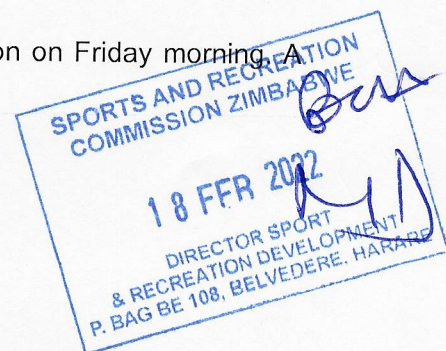 on on Friday morning. A
SPORTS AND RECREATION
COMMISSION ZIMBABWE
18 FEB 2022
DIRECTOR SPORT
& RECREATION DEVELOPMENT
P. BAG BE 108, BELVEDERE. HARARE